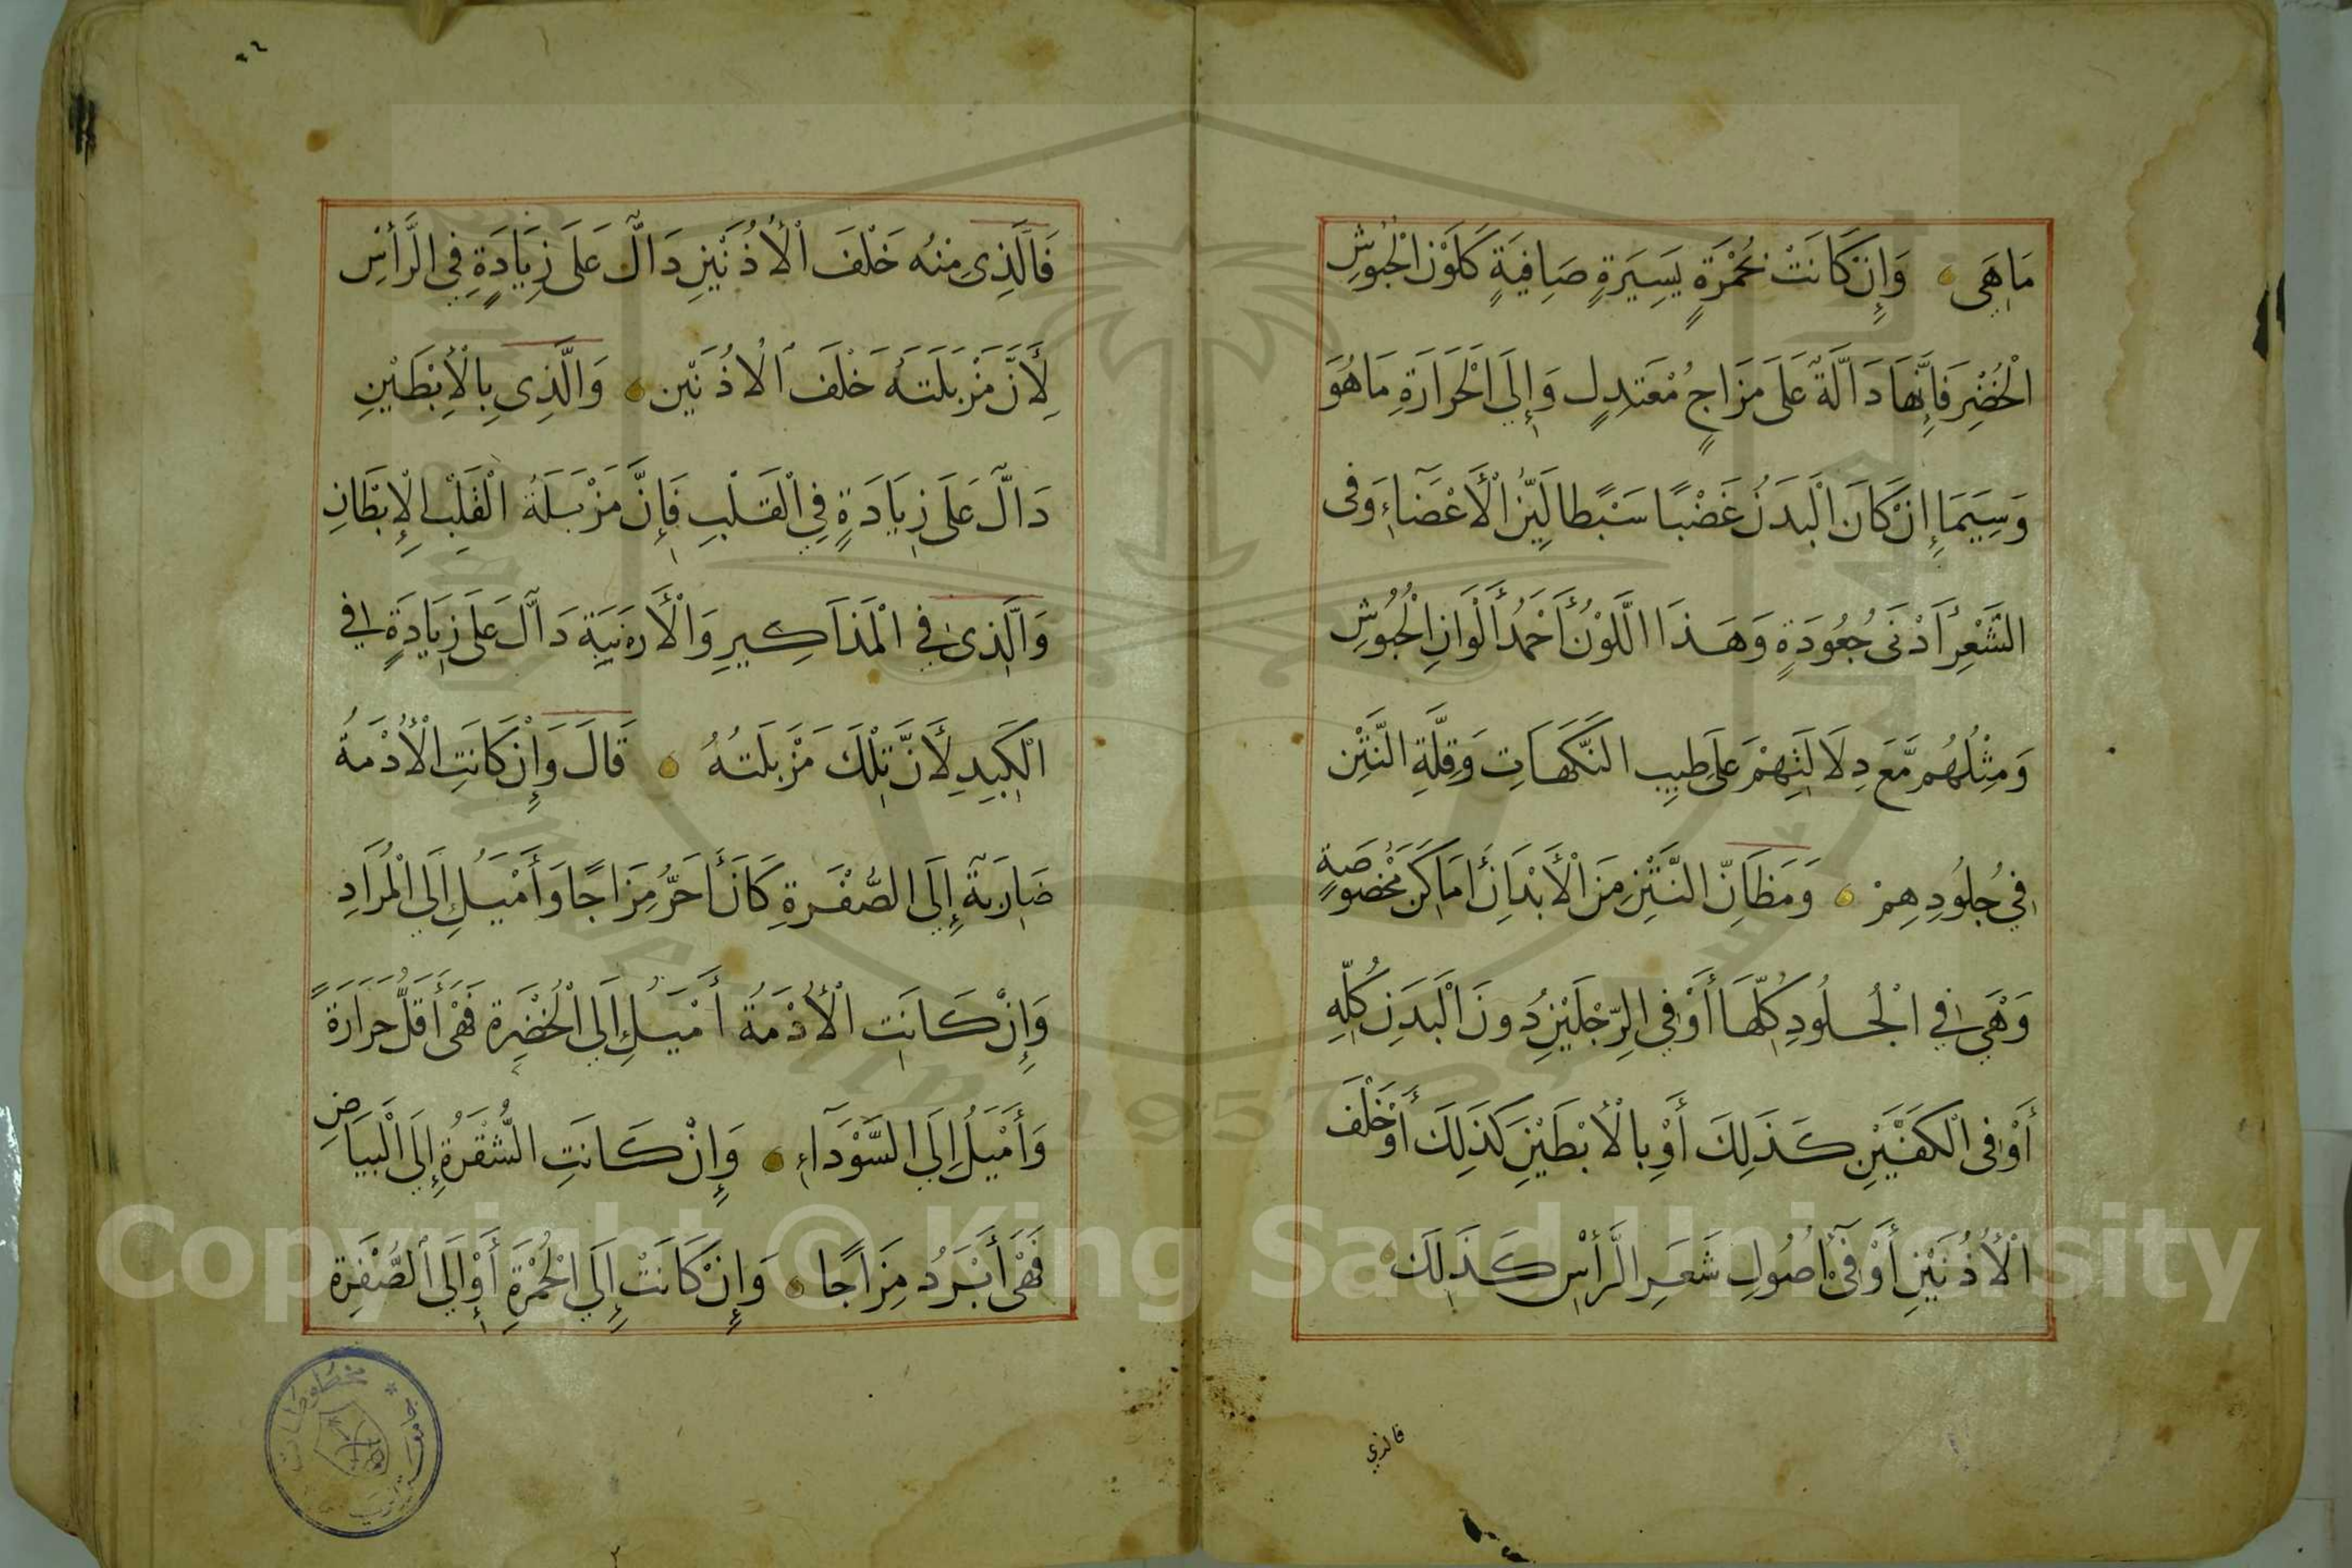 مَاهِيَ وَإِنْ كَانَتْ بِحُمْرَةٍ يَسِيرَةٍ صَافِيَةٍ كَلَوْنِ الْحُبُوشِ
الْخُضْرِ فَإِنَّهَا دَالَّةٌ عَلَى مَزَاجٍ مُعْتَدِلٍ وَإِلَى الْحَرَارَةِ مَا هُوَ
وَسِيَمَا إِنْ كَانَ الْبَدَنُ غَضْبًا سَبْطًا لَيِّنَ الْأَعْضَاءِ وَفِي
الشَّعْرِ أَدْنَى جُعُودَةٍ وَهَذَا اللَّوْنُ أَحْمَدُ أَلْوَانِ الْحُبُوشِ
وَمِثْلُهُمْ مَعَ دِلَالَتِهِمْ عَلَى طِيبِ النَّكَهَاتِ وَقِلَّةِ النَّتْنِ
فِي جُلُودِهِمْ وَمَظَانُّ النَّتْنِ مِنَ الْأَبْدَانِ أَمَاكِنُ مَخْصُوصَةٍ
وَهْيَ فِي الْجُلُودِ كُلِّهَا أَوْ فِي الرِّجْلَيْنِ دُونَ الْبَدَنِ كُلِّهِ
أَوْ فِي الْكَفَّيْنِ كَذَلِكَ أَوْ بِالْأِبْطَيْنِ كَذَلِكَ أَوْ خَلْفَ
الْأُذُنَيْنِ أَوْ فِي أُصُولِ شَعَرِ الرَّأْسِ كَذَلِكَ
فالذي
٣٦
فَالَّذِي مِنْهُ خَلْفَ الْأُذُنَيْنِ دَالٌّ عَلَى زِيَادَةٍ فِي الرَّأْسِ
لِأَنَّ مَزْبَلَتَهُ خَلْفَ الْأُذُنَيْنِ وَالَّذِي بِالْأِبْطَيْنِ
دَالٌّ عَلَى زِيَادَةٍ فِي الْقَلْبِ فَإِنَّ مَزْبَلَةُ الْقَلْبِ الْإِبْطَانِ
وَالَّذِي فِي الْمَذَاكِيرِ وَالْأَرْنَبِيَةِ دَالٌّ عَلَى زِيَادَةٍ فِي
الْكَبِدِ لِأَنَّ تِلْكَ مَزْبَلَتُهُ قَالَ وَإِنْ كَانَتِ الْأُدْمَةُ
ضَارِبَةً إِلَى الصُّفْرَةِ كَانَ أَحَرُّ مِزَاجًا وَأَمْيَلُ إِلَى الْمُرَادِ
وَإِنْ كَانَتِ الْأُدْمَةُ أَمْيَلُ إِلَى الْخُضْرَةِ فَهْيَ أَقَلُّ حَرَارَةً
وَأَمْيَلُ إِلَى السَّوْدَآءِ وَإِنْ كَانَتِ الشُّقْرَةُ إِلَى الْبَيَاضِ
فَهْيَ أَبْرَدُ مِزَاجًا وَإِنْ كَانَتْ إِلَى الْحُمْرَةِ أَوْ إِلَى الصُّفْرَةِ
مخطوطات
Copyright © King Saud University
1957